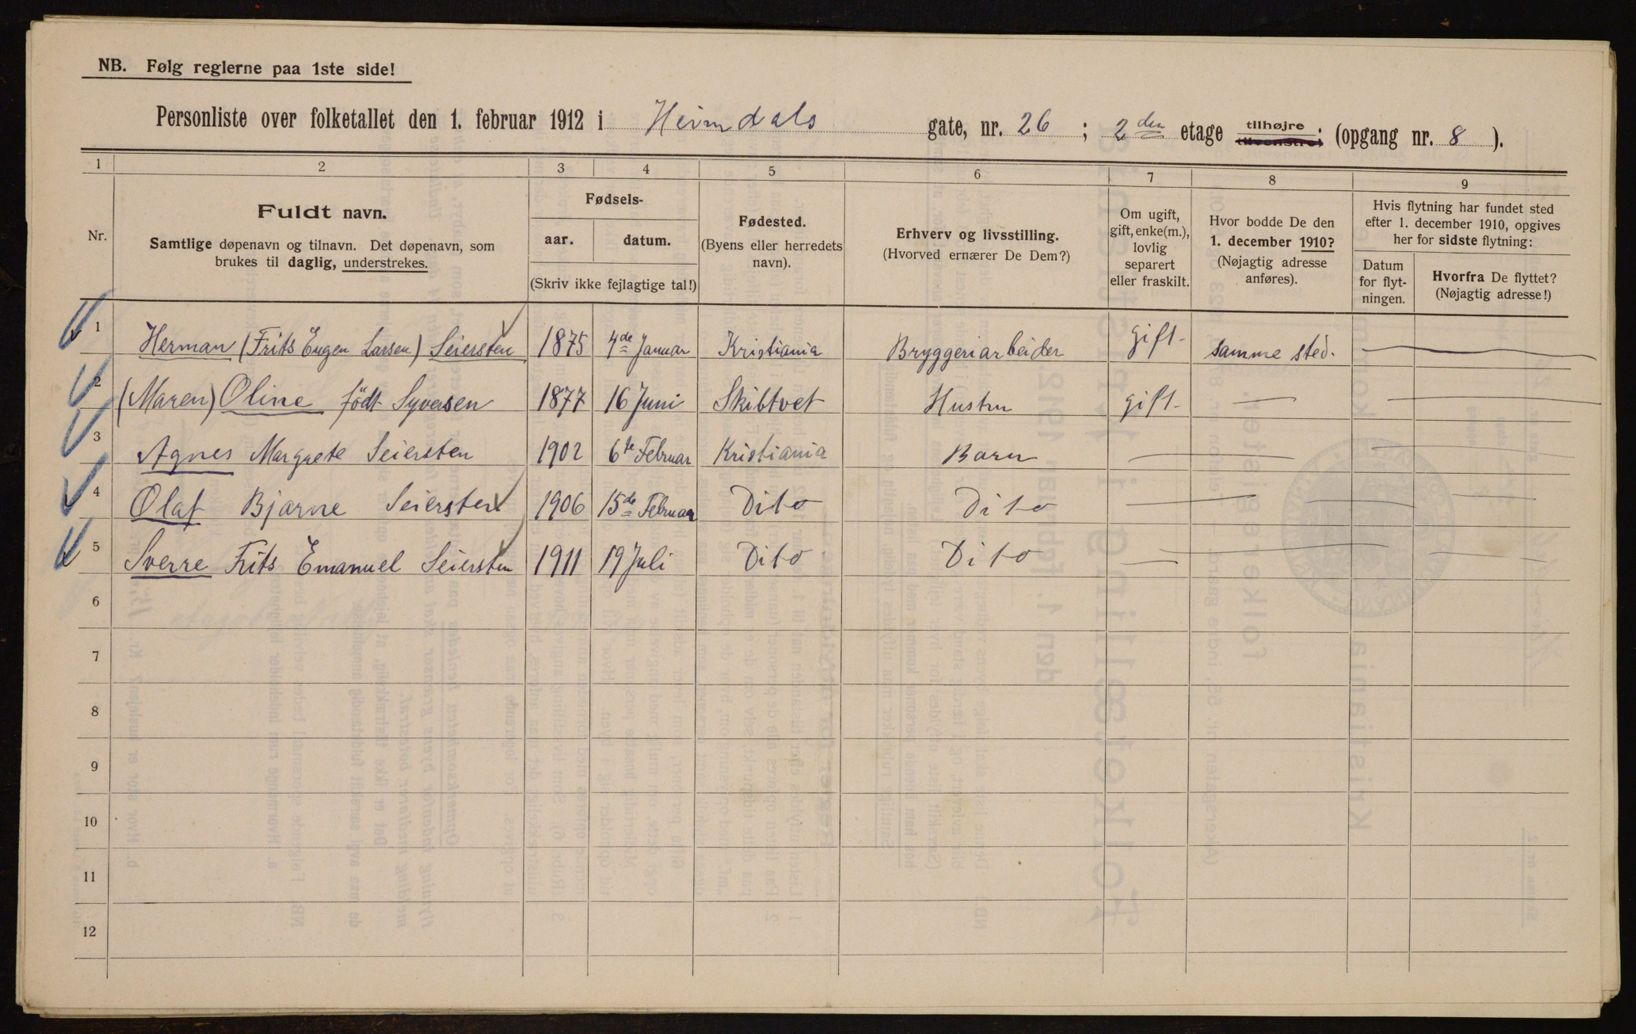 NB. Følg reglerne paa 1ste side!
Personliste over folketallet den 1. februar 1912 i Heimdals gate, nr. 26 ; 2den etage tilhøjre tilvenstre; (opgang nr. 8 ).
1 2 3 4 5 6 7 8 9
Nr.
Fuldt navn.
Samtlige døpenavn og tilnavn. Det døpenavn, som
brukes til daglig, understrekes.
Fødsels-
aar. datum.
(Skriv ikke fejlagtige tal!)
Fødested.
(Byens eller herredets
navn).
Erhverv og livsstilling.
(Hvorved ernærer De Dem?)
Om ugift,
gift, enke(m.),
lovlig
separert
eller fraskilt.
Hvor bodde De den
1. december 1910?
(Nøjagtig adresse
anføres).
Hvis flytning har fundet sted
efter 1. december 1910, opgives
her for sidste flytning:
Datum
for flyt-
ningen.
Hvorfra De flyttet?
(Nøjagtig adresse!)
1 Herman (Frits Eugen Larsen) Seiersten 1875 4de Januar Kristiania Bryggeriarbeider gift. samme sted.
2 (Maren) Oline født Syversen 1877 16 Juni Skibtvet Hustru gift.
3 Agnes Margrete Seiersten 1902 6te Februar Kristiania Barn
4 Olaf Bjarne Seiersten 1906 15de Februar Dito Dito
5 Sverre Frits Emanuel Seiersten 1911 19 Juli Dito Dito
6
7
8
9
10
11
12